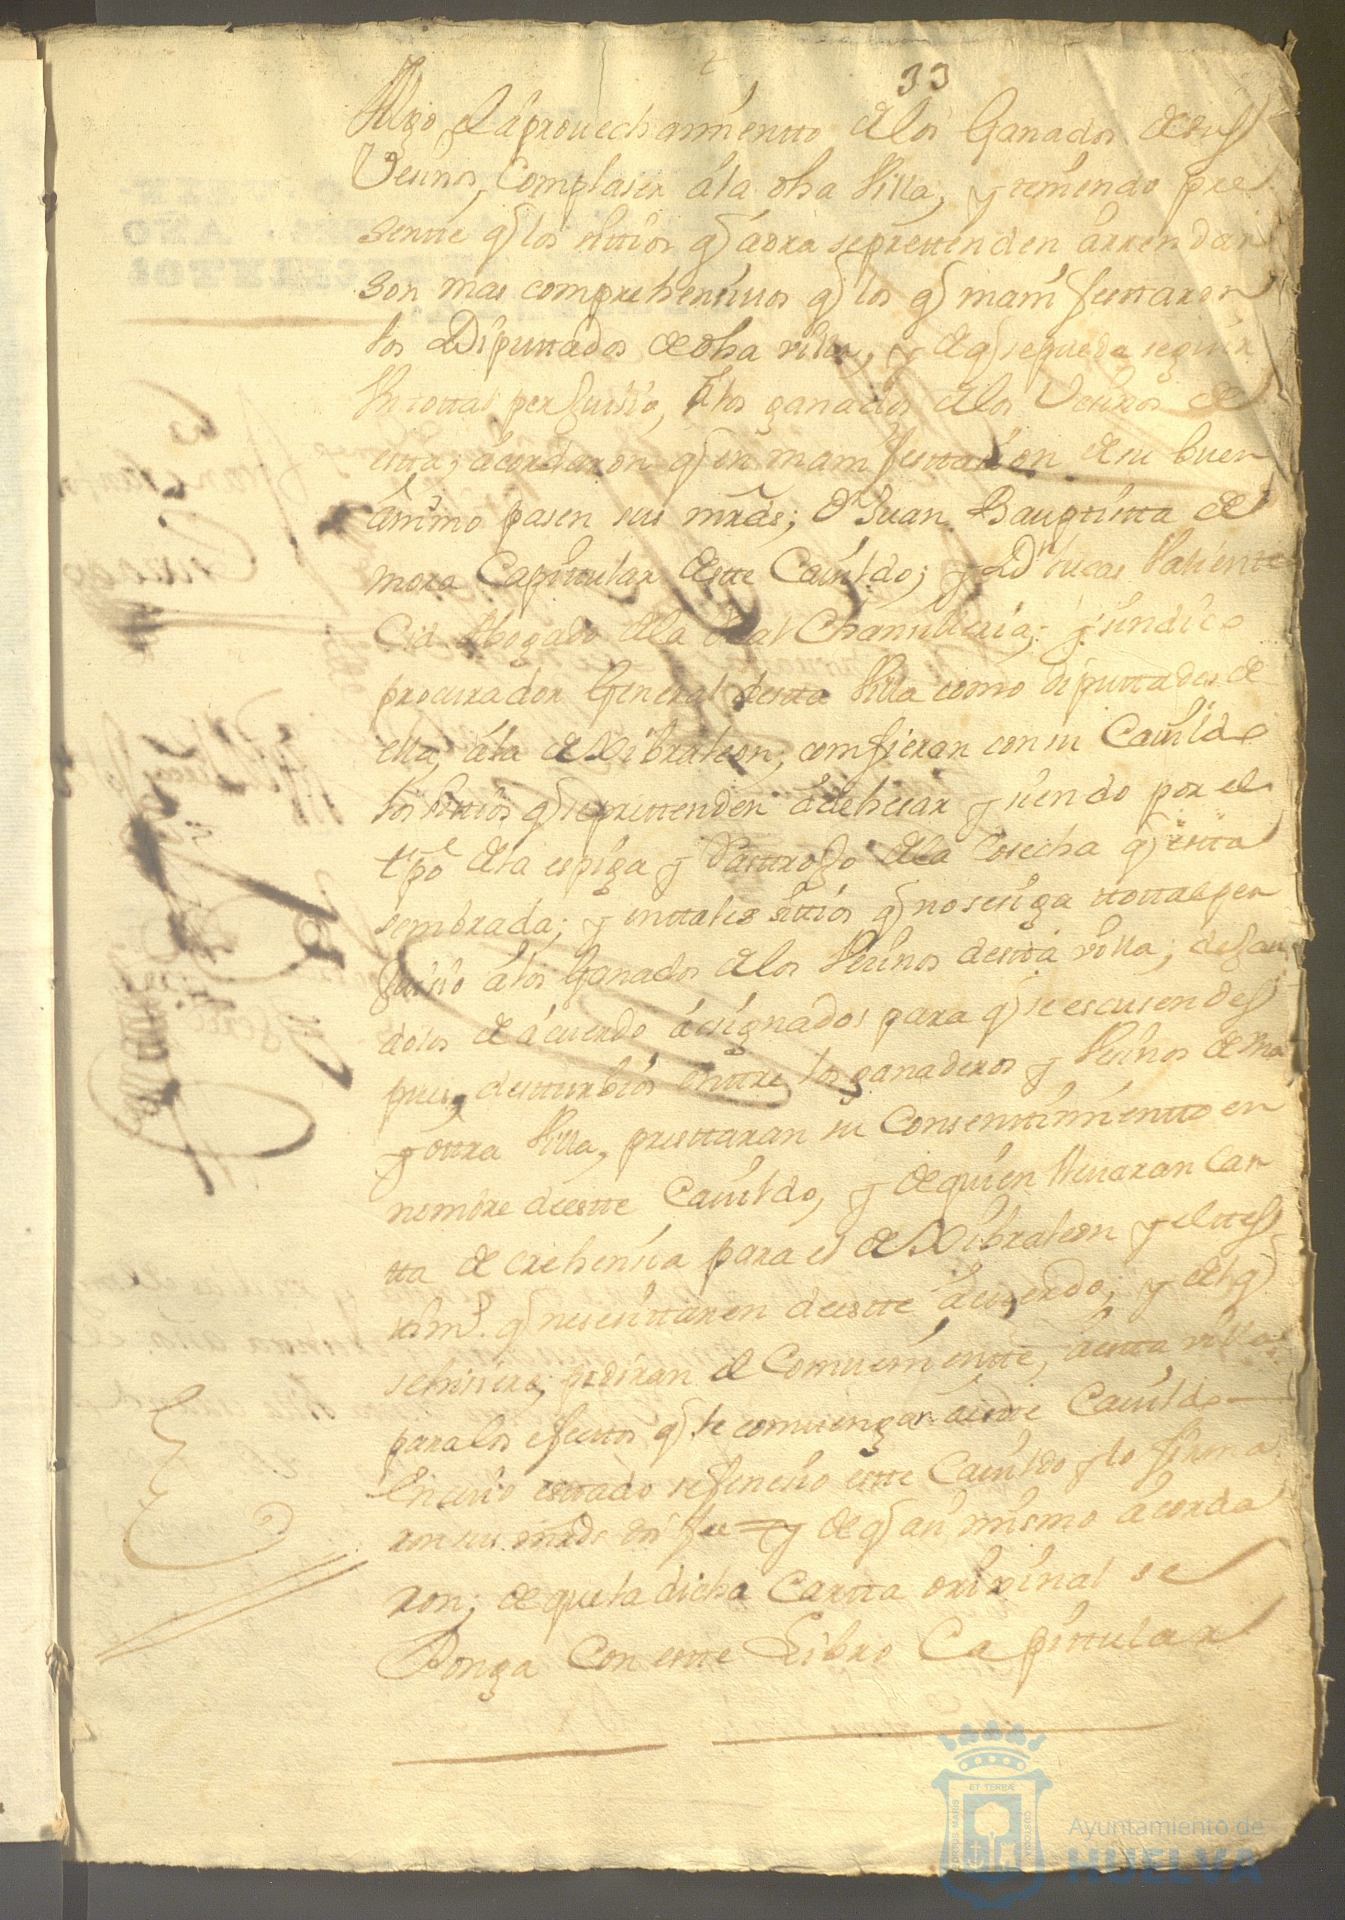 33
el aprouechamientto de los Ganados de sus
Vesinos, Complaser a la dha Villa, y teniendo pre
sentte q los sittios q aora se prettenden arrendar
son mas comprehensiuos q los q manifesttaron
los Diputtados de dha villa, y de q se pueda seguir
tottal perjuisio, a los ganados de los Vesinos de
estta; acordaron q en manifesttasion de su buen
animo pasen sus mrds; Dn Juan Bauptistta de
mora Capittular deste Cauildo; y Dn lucas Valiente
Cid Abogado de la Real Chansilleria; y sindico
procurador General desta Villa como diputtados de
ella, a la de Xibraleon, comfieran con su Cauildo
los sittios q se prettenden adehesar y siendo por el
tpo de la espiga y Pastrojo de la Cosecha q esta
sembrada; y en ttales sittios q no se siga tottal per
juisio a los Ganados de los Vesinos desta villa; dejan
dolos de acuerdo asignados para q se escusen des
pues, desturbios entre los ganaderos y Vesinos de una
y ottra Villa, presttaran su Consenttimientto en
nombre de estte Cauildo, y de quien lleuaran Car
tta de crehensia para el de Xibraleon y el ttes
timo. q nesesittaren de estte acuerdo; y del q
se hisiere, pediran el Comueniente, a esta villa
para los efecttos q le comuengan a este Cauildo
En cuio estado se fenesio este Cauildo y lo firma
ron sus mrds doi fee = y de q asi mismo acorda
ron; de que la dicha Cartta original se
Ponga Con este Libro Capittular
ET TERRÆ
PORTUS MARIS
CUSTODIA
Ayuntamiento de
HUELVA